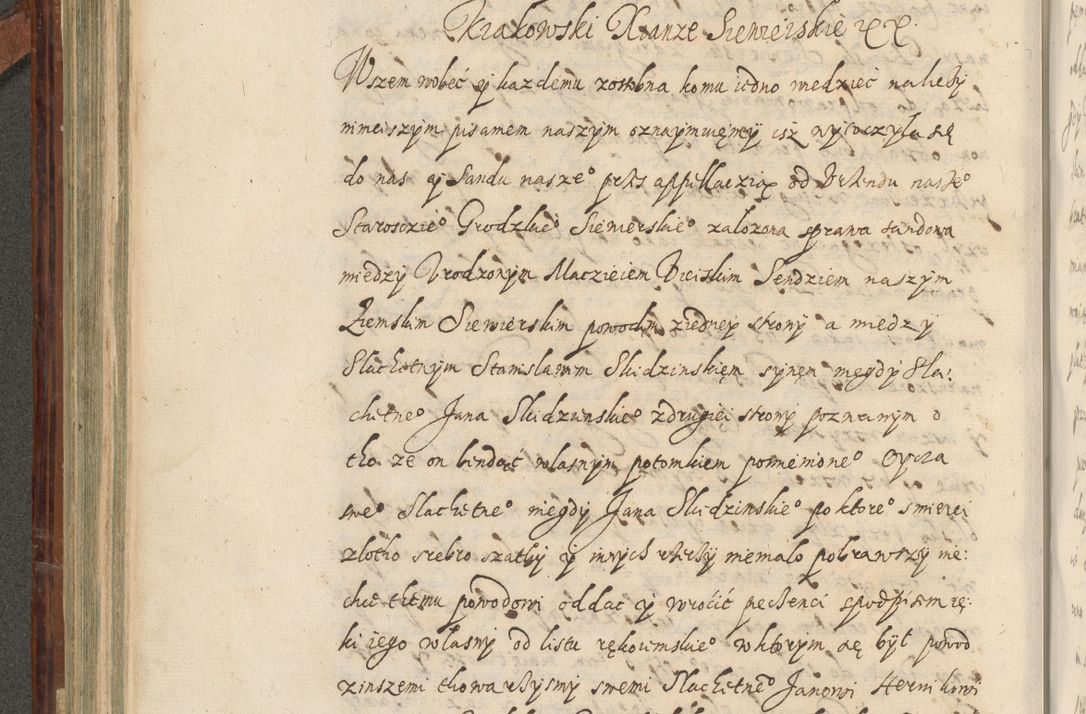 Krakowski Xianze Siewierskie
Wszem wobec y kazdemu zosobna komu iedno wiedziec nalieży
ninieiszym pisaniem naszym oznaymuięmy isz wytoczyla się
do nas y Sandu nasze° przes appellaczią od Vrzendu nasze°
Starosczie° Grodzkie° Siewierskie° zalozona sprawa sandowa
miedzy Vrodzonym Macziejem Sendziem naszym
Ziemskim Siewierskim powodem ziedney strony a miedzy
Slachetnym Stanislawem Slidzinskięm synęm niegdy Sla:
chetne° Jana Slidzinskie° zdrugiei strony pozwanym o
tho ze on bendąc wlasnym potomkiem pomienione° Oycza
swe° Slachetne° niegdy Jana Slidzinskie° po ktore° smierci
zlotho srebro szathy y innych rzeczy niemalo pobrawszy nie:
chce themu powodowi oddac y wrocić pieczenci spodpisem rę:
ki iego wlasny od listu rękoiemskie° wktorym się był powod
zinszemi thowarzysmy swemi Slachetne° Janowi